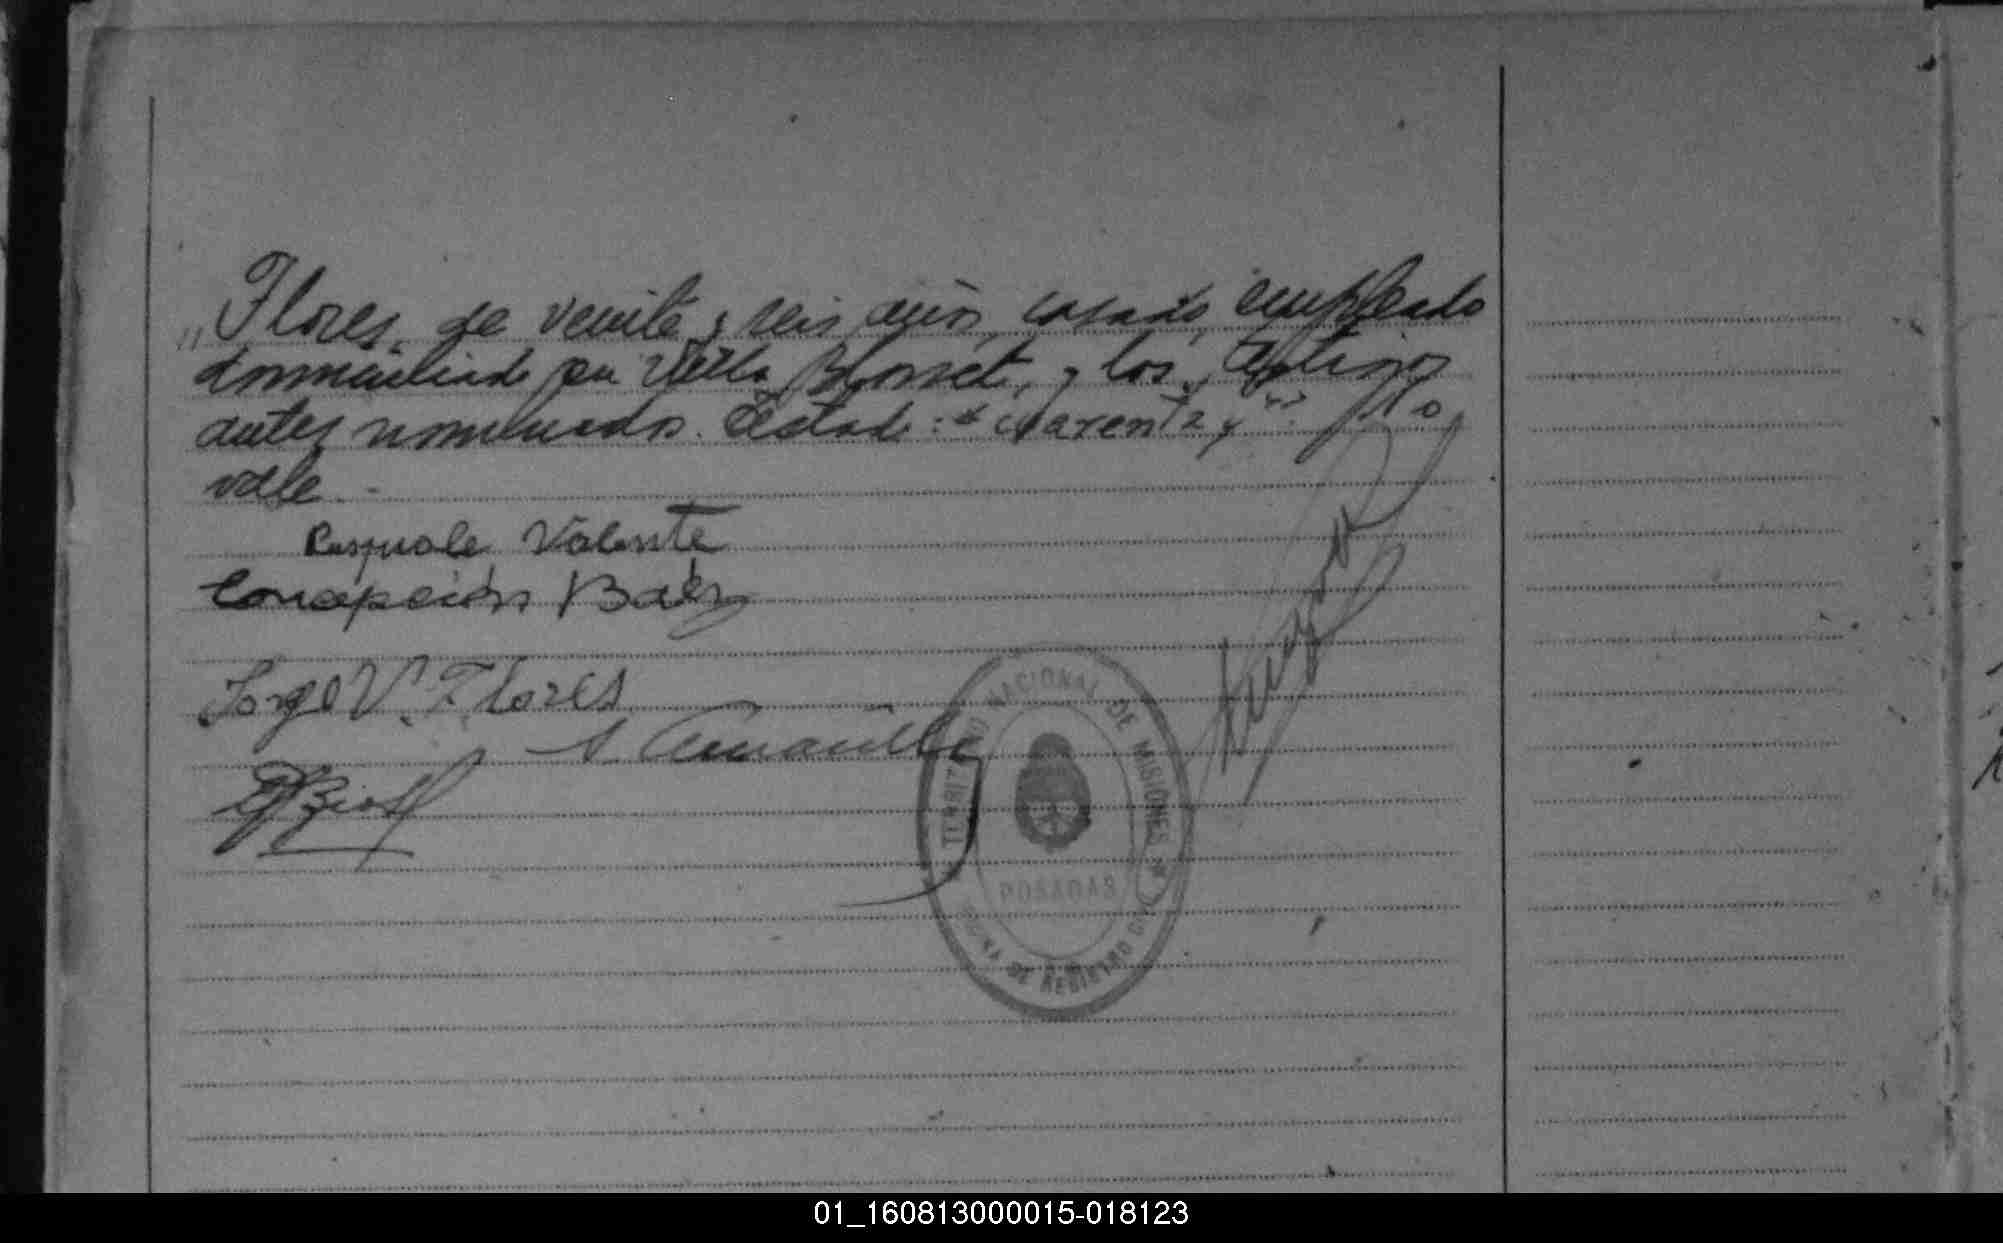 „Flores, de veinte y seis años, casado, empleado
domiciliado en Villa Blosset, y los testigos
antes nombrados. Testado: "cuarenta y": No
vale.-
Pasquale Valente
Concepción Baéz
Jorge V. Flores
TERRITORIO NACIONAL DE MISIONES
POSADAS
OFICINA DE REGISTRO CIVIL
01_160813000015-018123